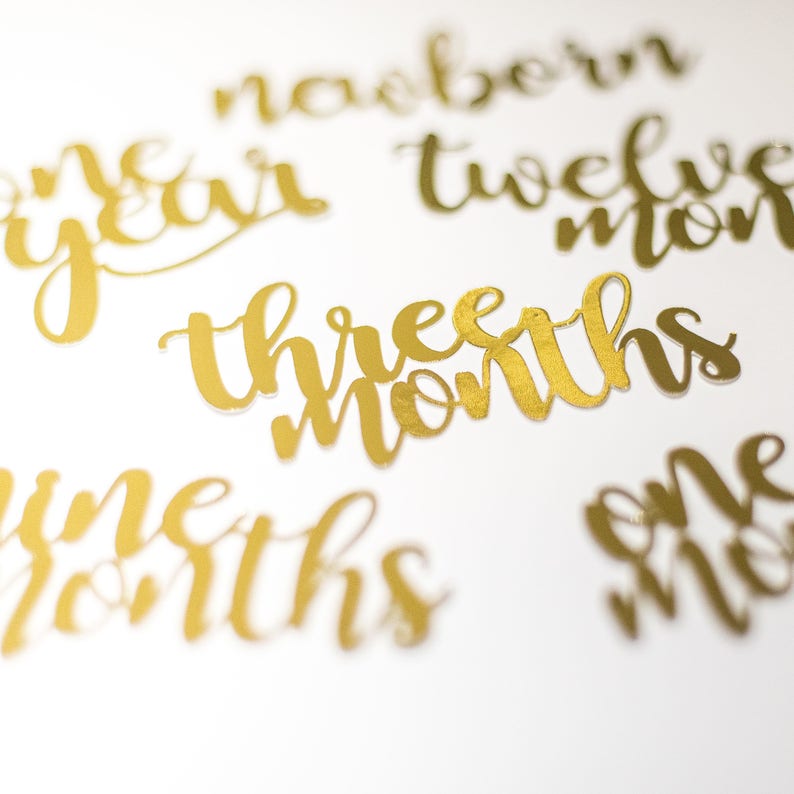 newborn
one
year
twelve
mon
three
months
nine
months
one
mo